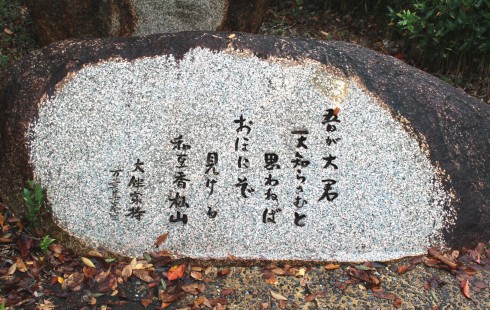 吾が大君
天知らさむと
思わねば
おほにぞ
見ける
和豆香杣山
大伴家持
万葉集